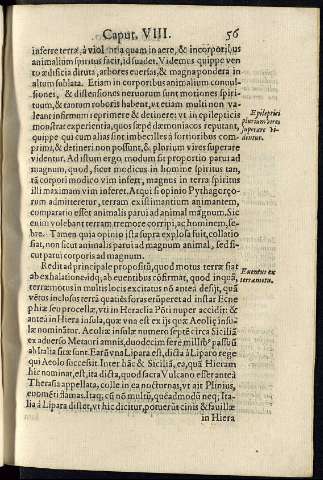 Caput. VIII. 56
inferre terræ, à violētia quam in aere, & in corporibus
animalium spiritus facit, id suadet. Videmus quippe ven
to ædificia diruta, arbores euersas, & magna pondera in
altum sublata. Etiam in corporibus animalium conuul-
siones, & distensiones neruorum sunt motiones spiri-
tuum, & tantum roboris habent, vt etiam multi non va-
leant infirmum reprimere & detinere: vt in epilepticis
monstrat experientia, quos sæpè dæmoniacos reputant,
quippe qui cum alias sint imbecilles à fortioribus com-
primi, & detineri non possunt, & plorium vires superare
videntur. Ad istum ergo, modum fit proportio parui ad
magnum, quod, sicut modicus in homine spiritus tan,
tā corpori modico vim infert, magnus in terra spiritus
illi maximam vim inferet. Atqui si opinio Pythagorço-
rum admitteretur, terram existimantium animantem,
comparatio esset animalis parui ad animal magnum. Sic
enim volebant terram tremore corripi, ac hominem, fe-
bre. Tamen quia opinio ista supra explosa fuit, collatio
fiat, non sicut animalis parui ad magnum animal, sed si-
cut parui corporis ad magnum.
Epileptici
plurium vires
superare vi-
dentur.
Redit ad principale propositū, quod motus terræ fiat
ab exhalatione: idq; ab euentibus cōfirmat, quod inquā,
terræmotus in multis locis excitatus nō antea desijt, quā
vētos inclusos terrā quatiēs foras erūperet ad instar Ecne
phiæ seu procellæ, vti in Heraclia Pōti nuper accidit: &
antea in Hiera insula, quæ vna est ex ijs quæ Aeolię insu-
læ nominātur. Aeoliæ insulæ numero septē circa Siciliā
ex aduerso Metauri amnis, duodecim fere millibꝰ passuū
ab Italia sitæ sunt. Earū vna Lipara est, dicta à Liparo rege
qui Aeolo successit. Inter hāc & Siciliā, ea, quā Hieram
hic nominat, est, ita dicta, quod sacra Vulcano esset antea
Therasia appellata, colle in ea nocturnas, vt ait Plinius,
euomēti flamas. Itaq; cū nō multū, quéadmodū neq; Ita-
lia à Lipara distet, vt hic dicitur, potuerūt cinis & fauillæ
Euentus ex
terramotu.
in Hiera